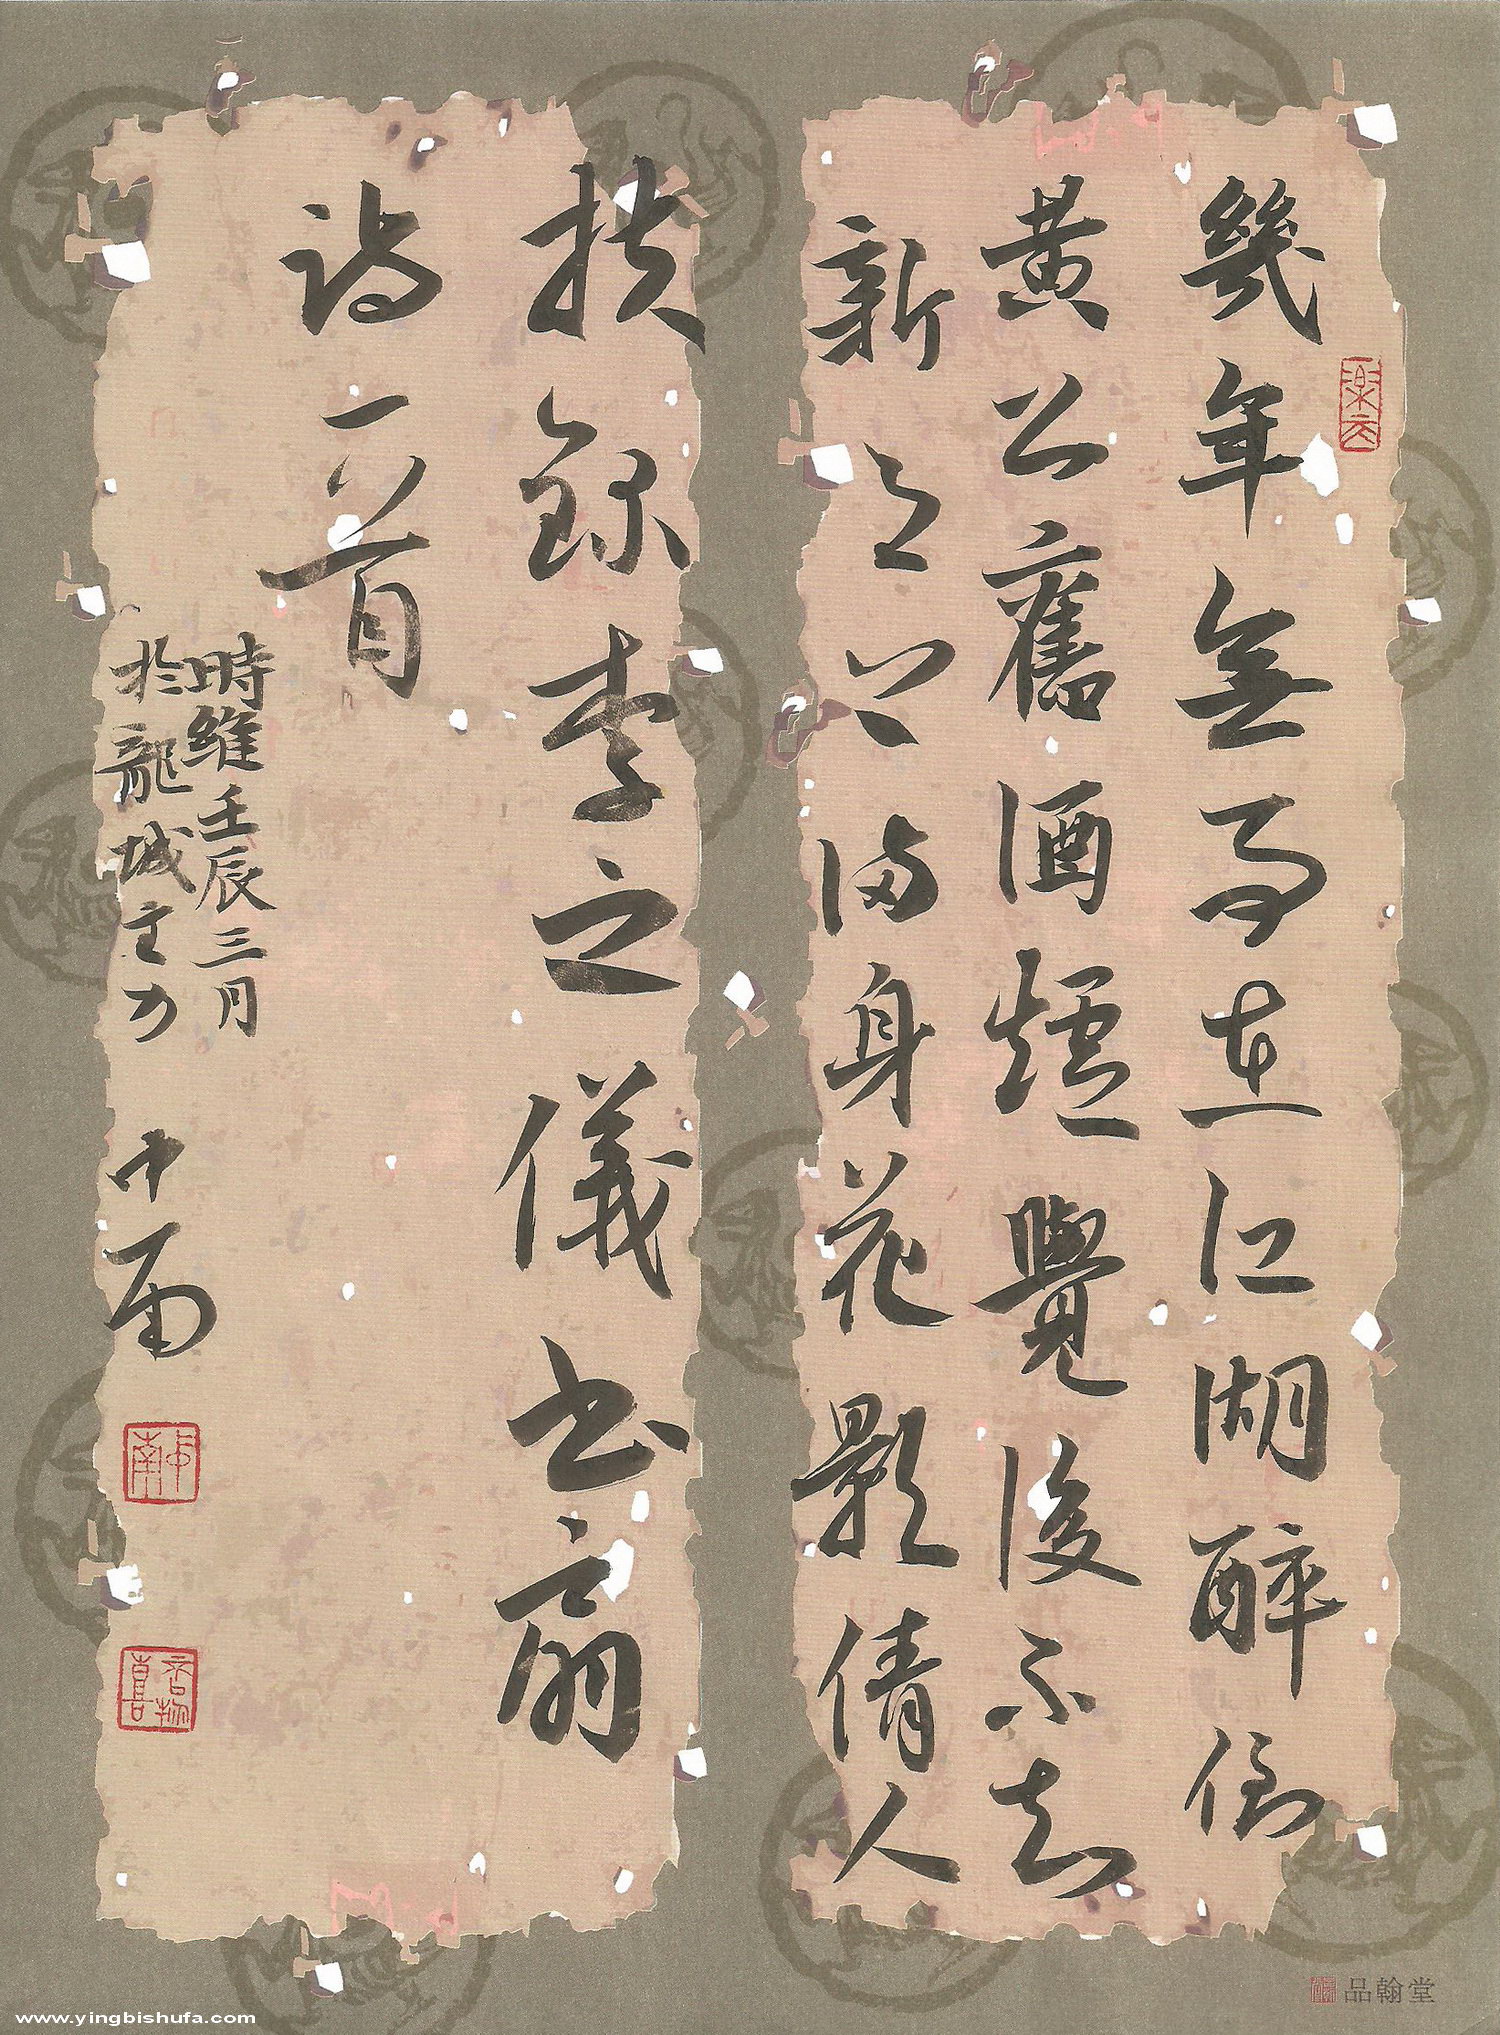 幾年無事在江湖醉倒
黄公舊酒爐覺後不知
新月上滿身花影倩人
扶錄李之儀書扇
詩一首
時維壬辰三月
於龍城
中南
品翰堂
www.yingbishufa.com